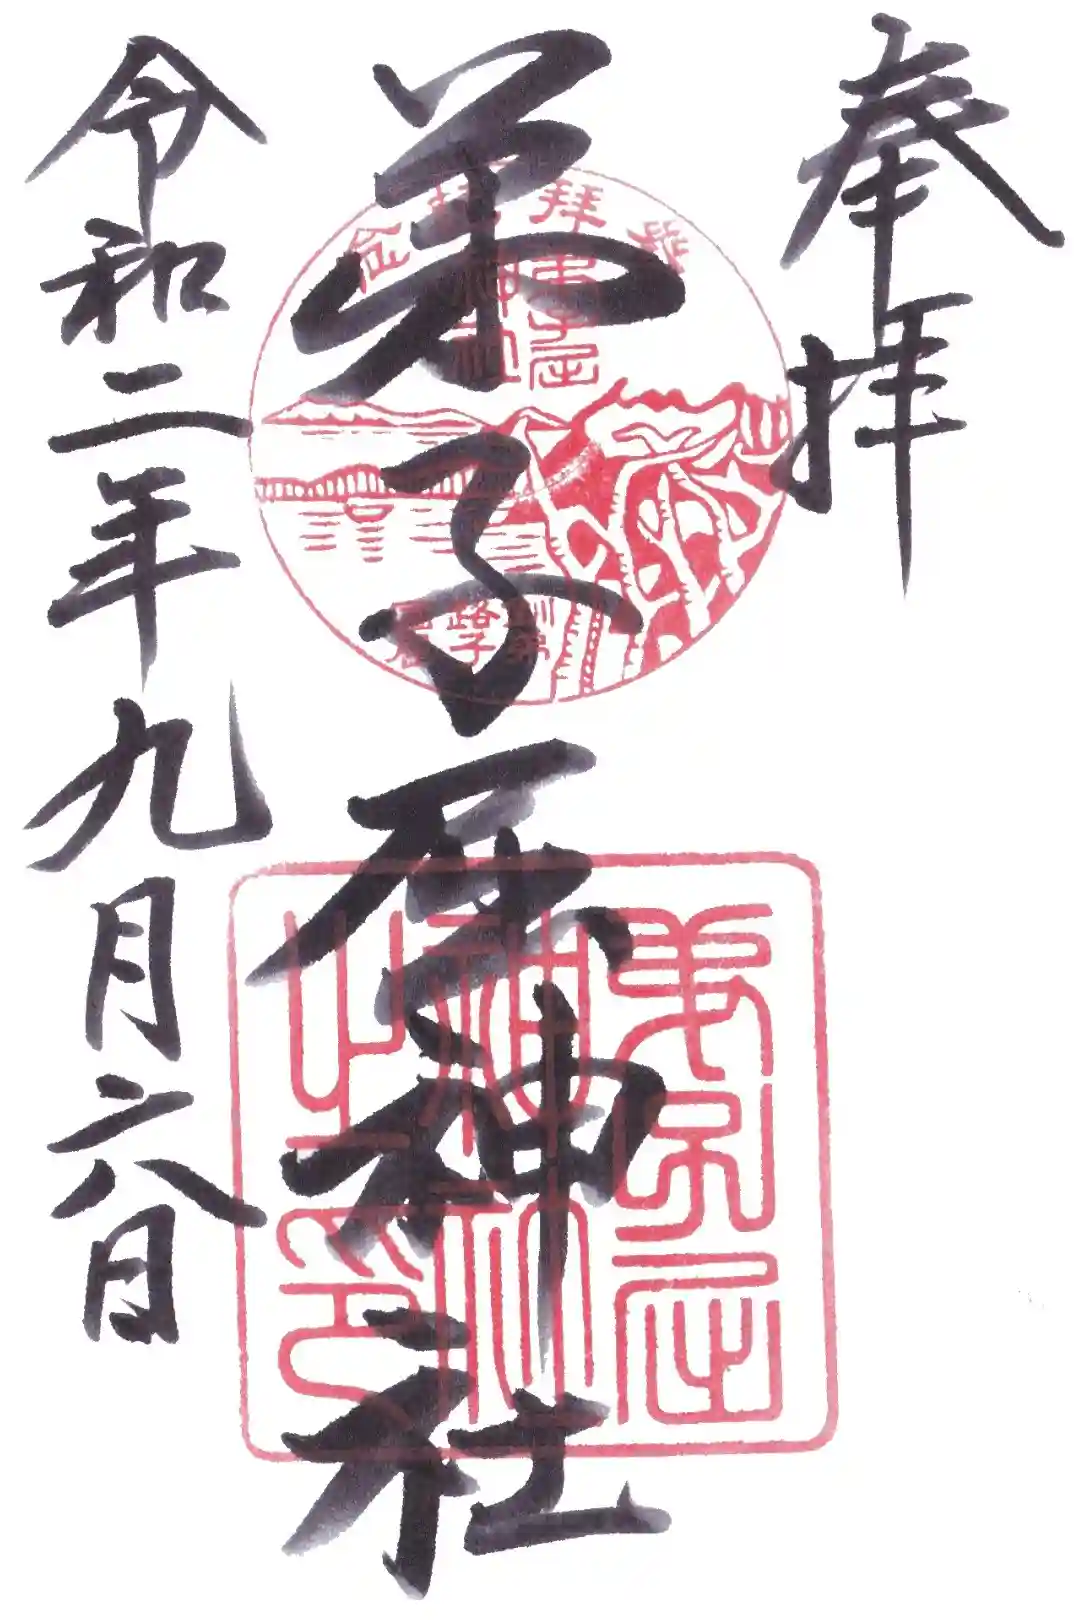 奉拝
弟子屈神社
令和二年九月六日
登拝記念
弟子屈
神社
釧路
弟子屈
弟子屈
神社
之印